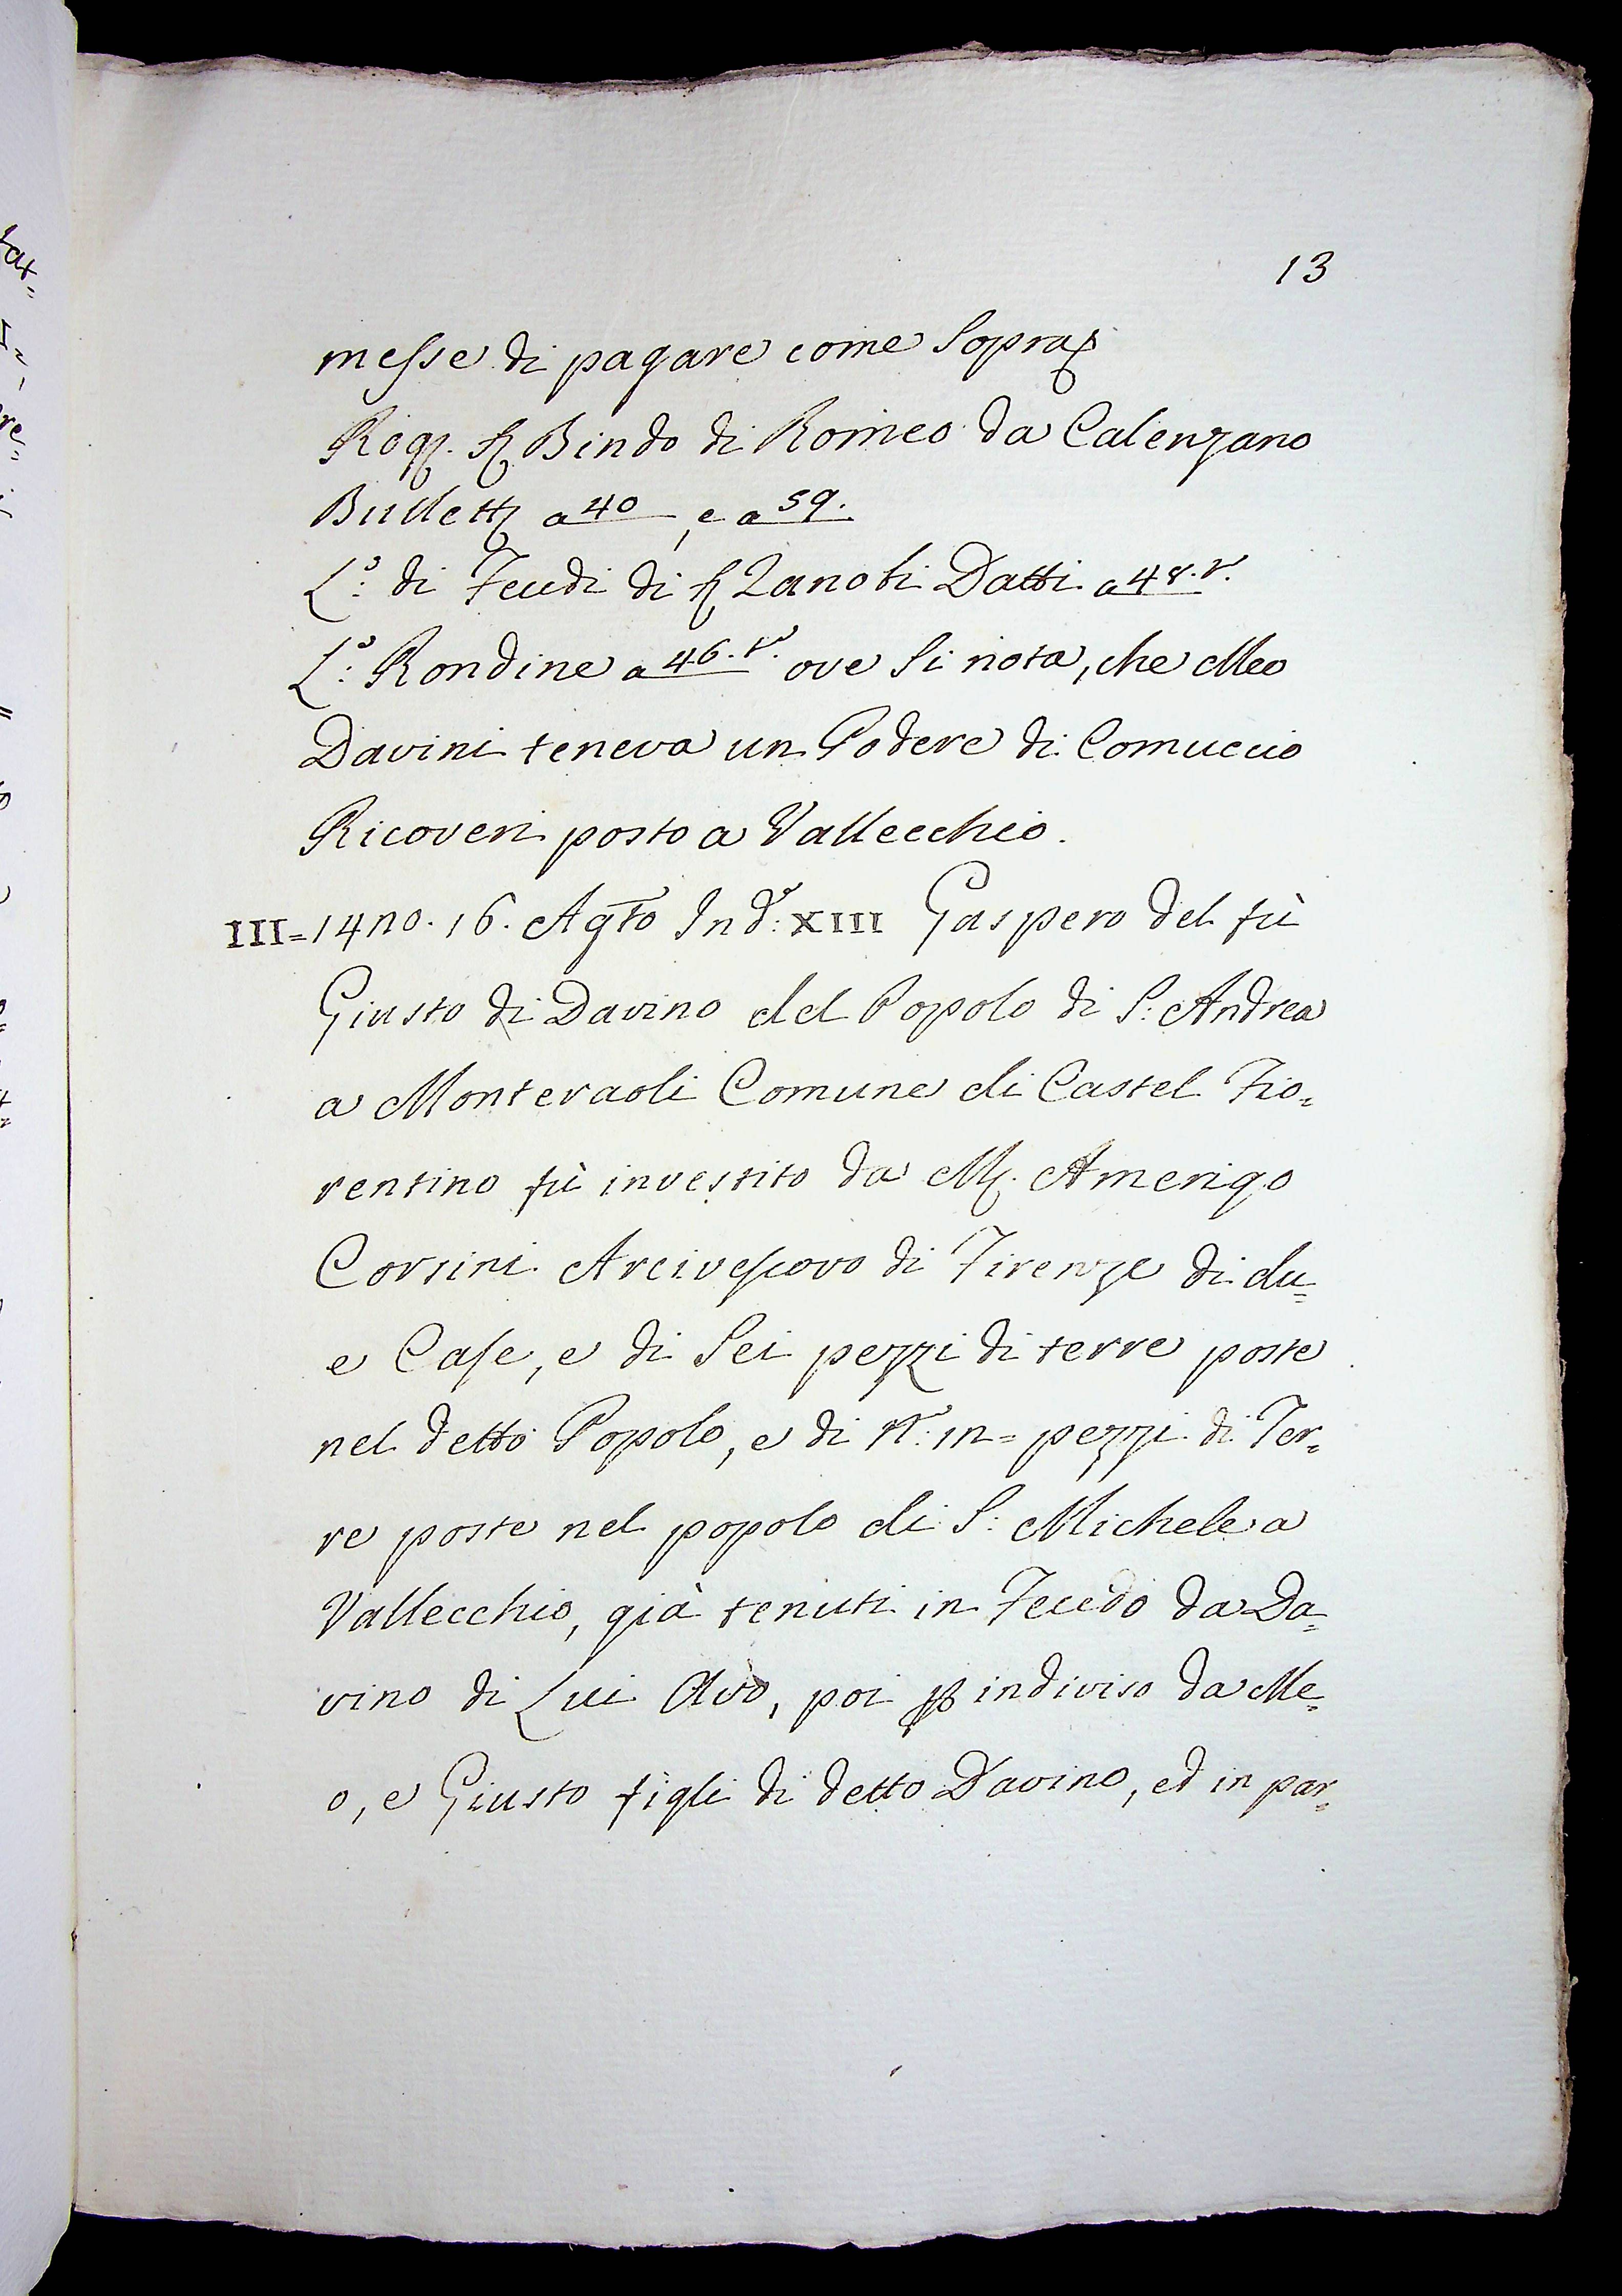 13
messe di pagare come Sopra
Rog. Bindo di Romeo da Calenzano
Bullett a 40 , e a 59.
L.º di Feudi di Zanobi Datti a 48. v.
L.º Rondine a 46. v. ove Si nota, che Meo
Davini teneva un Podere di Comuccio
Ricoveri posto a Vallecchio.
III= 16. Agto Ind: XIII Gaspero del fù
Giusto di Davino del Popolo di S: Andrea
a Monteraoli Comune di Castel Fio=
rentino fù investito da M. Amerigo
Corsini Arcivescovo di Firenze di du=
e Case, e di Sei pezzi di terre poste
nel detto Popolo, e di N: pezzi di Ter=
re poste nel popolo di S: Michele a
Vallecchio, già tenuti in Feudo da Da=
vino di Lui Avo, poi p indiviso da Me=
o, e Giusto figli di detto Davino, ed in par=